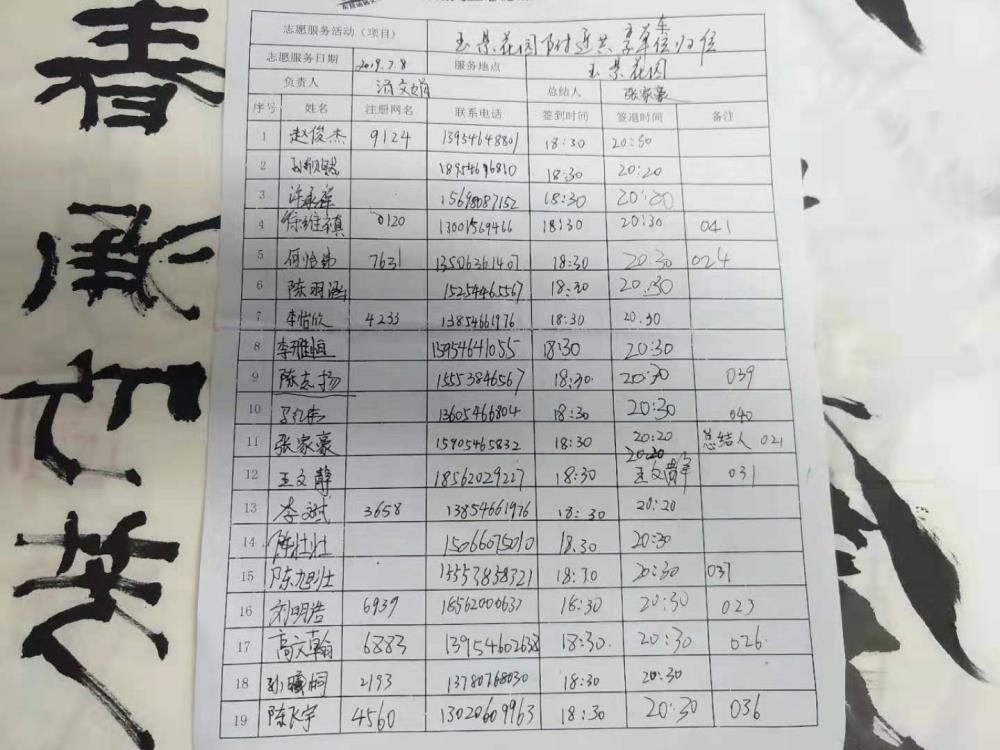 志愿服务活动（项目） 玉景花园附近共享单车归位
志愿服务日期 2019.7.8 服务地点 玉景花园
负责人 汤文娟 总结人 张家豪
序号 姓名 注册网名 联系电话 签到时间 签退时间 备注
1 赵俊杰 9124 13954648801 18:30 20:30
2 18954696810 18:30 20:20
3 15698087152 18:30 20:20
4 徐维禛 0120 13001569466 18:30 20:30 041
5 何怡锦 7631 13506361407 18:30 20:30 024
6 陈羽涵 15254465567 18:30 20:30
7 李怡欣 4233 13854661976 18:30 20.30
8 李雅恒 15954641055 18:30 20:30
9 陈志扬 15553846567 18:30 20:30 039
10 13605466804 18:30 20:30 040
11 张家豪 15905465832 18:30 20:20 总结人 021
12 王文静 18562029227 18:30 20:20 王文静 031
13 李斌 3658 13854661976 18:30 20:20
14 陈壮壮 15066075010 18.30 20:30
15 陈旭壮 15553858321 18:30 20:30 037
16 刘明浩 6939 18562000637 18:30 20:30 023
17 高文翰 6883 13954602638 18:30. 20:30 026
18 孙曦桐 2193 13780768030 18:30 20:30
19 陈飞宇 4560 13020609963 18:30 20:30 036
春
承